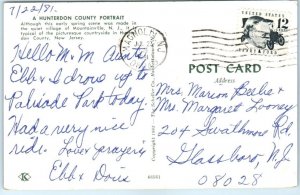 7/22/81.
A HUNTERDON COUNTY PORTRAIT
Although this early spring scene was made in
the quiet village of Mountainville, N. J., it is
typical of the picturesque countryside in Hunterdon
County, New Jersey.
Hello M. M Aunty
Ebb & I drove up to
Palisade Park today
Had a very nice
ride. Love & prayers
Ebb & Doris
K
UNITED STATES
12
POST CARD
Address
Mrs. Marion Beebe &
Mrs. Margaret Looney
204 Swathmore Rd.
Glassboro, N.J
08028